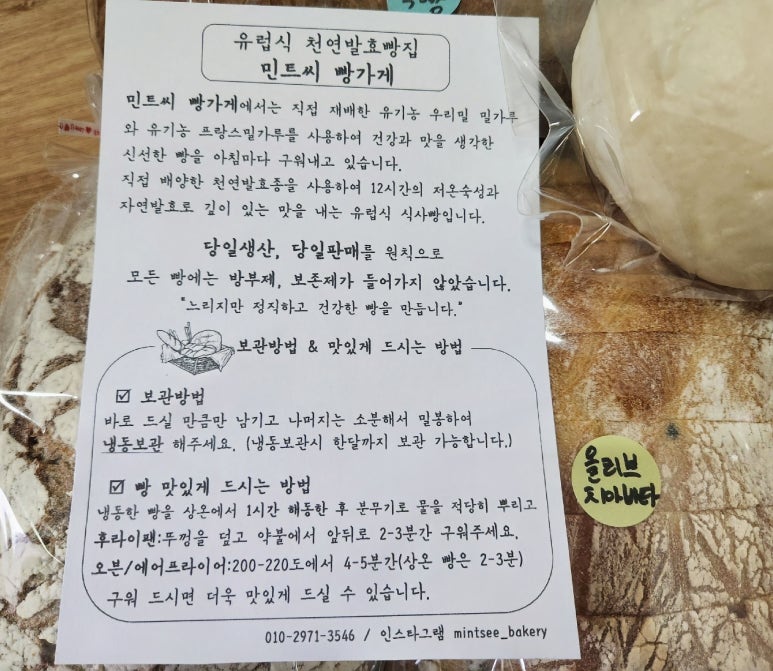 유럽식 천연발효빵집
민트씨 빵가게
민트씨 빵가게에서는 직접 재배한 유기농 우리밀 밀가루
와 유기농 프랑스밀가루를 사용하여 건강과 맛을 생각한
신선한 빵을 아침마다 구워내고 있습니다.
직접 배양한 천연발효종을 사용하여 12시간의 저온숙성과
자연발효로 깊이 있는 맛을 내는 유럽식 식사빵입니다.
당일생산, 당일판매를 원칙으로
모든 빵에는 방부제, 보존제가 들어가지 않았습니다.
"느리지만 정직하고 건강한 빵을 만듭니다."
보관방법 & 맛있게 드시는 방법
☑ 보관방법
바로 드실 만큼만 남기고 나머지는 소분해서 밀봉하여
냉동보관 해주세요. (냉동보관시 한달까지 보관 가능합니다.)
☑ 빵 맛있게 드시는 방법
냉동한 빵을 상온에서 1시간 해동한 후 분무기로 물을 적당히 뿌리고
후라이팬:뚜껑을 덮고 약불에서 앞뒤로 2-3분간 구워주세요.
오븐/에어프라이어:200-220도에서 4-5분간(상온 빵은 2-3분)
구워 드시면 더욱 맛있게 드실 수 있습니다.
010-2971-3546 / 인스타그램 mintsee_bakery
올리브
치아바타